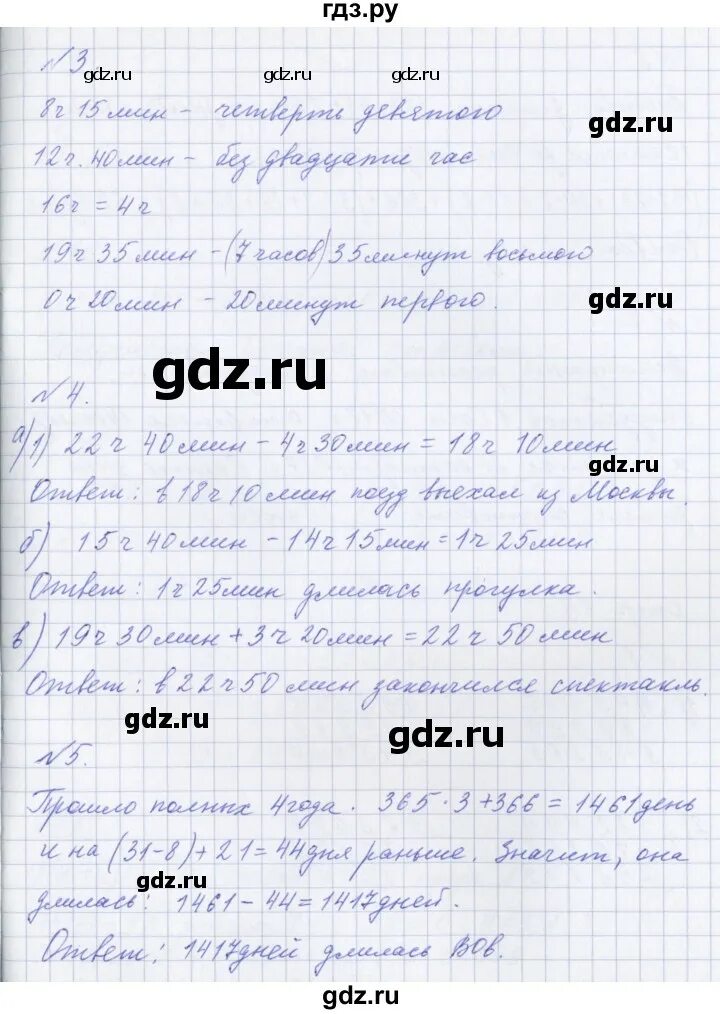 гдз.ру
№3
gdz.ru gdz.ru gdz.ru
8ч 15мин – четверть девятого
gdz.ru
12ч. 40мин – без двадцати час
16ч = 4ч
19ч 35мин – (7 часов) 35минут восьмого
0ч 20мин – 20минут первого.
gdz.ru
gdz.ru
№4.
а)1) 22ч 40мин – 4ч 30мин = 18ч 10мин
gdz.ru
Ответ: в 18ч 10мин поезд выехал из Москвы.
б) 15ч 40мин – 14ч 15мин = 1ч 25мин
Ответ: 1ч 25мин длилась прогулка.
в) 19ч 30мин + 3ч 20мин = 22ч 50мин
Ответ: в 22ч 50мин закончился спектакль.
gdz.ru
gdz.ru
№5.
Прошло полных 4года. 365·3+366 = 1461день
и на (31-8)+21=44дня раньше. Значит, она
gdz.ru
длилась: 1461-44=1417дней.
Ответ: 1417дней длилась ВОВ.
gdz.ru